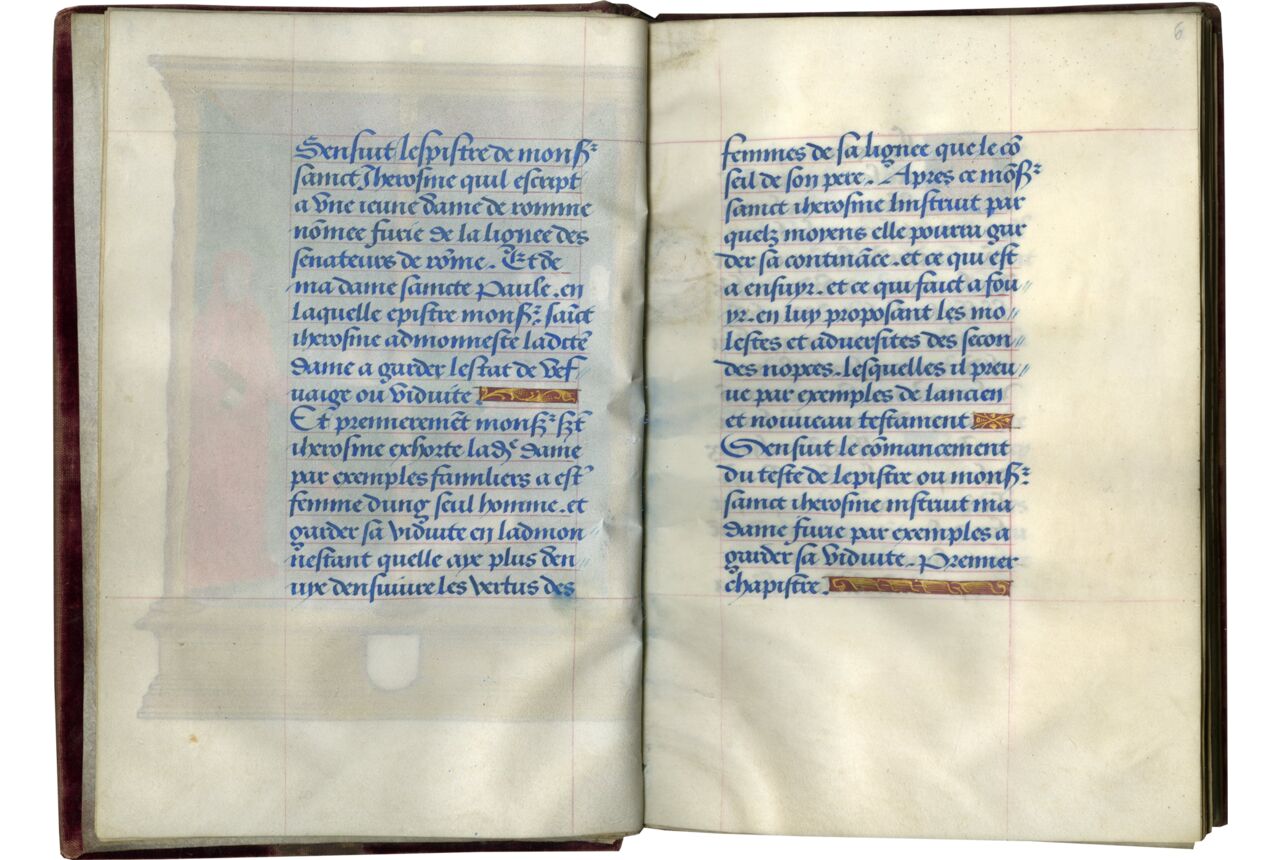 Sensuit lespistre de monsr
sainct Iherosme quil escript
a vne ieune dame de romme
nōmee furie de la lignee des
senateurs de rōme. Et de
ma dame saincte paule. en
laquelle epistre monsr. saīct
iherosme admonneste ladcte
dame a garder lestat de vef
uaige ou viduite
Et premieremēt monsr. sct
iherosme exhorte lade dame
par exemples familiers a est
femme dung seul homme. et
garder sa viduite en ladmon
nestant quelle aye plus den
uye densuiure les vertus des
6
femmes de sa lignee que le cō
seil de son pere. Apres ce mōsr
sainct iherosme linstruit par
quelz moyens elle pourra gar
der sa contināce. et ce qui est
a ensuyr. et ce qui faict a fou//
yr. en luy proposant les mo//
lestes et aduersites des secon//
des nopces. lesquelles il preu//
ue par exemples de lancien
et nouueau testament
Sensuit le cōmancement
du texte de lepistre ou monsr
sainct iherosme instruit ma
dame furie par exemples a
garder sa viduite. Premier
chapistre.